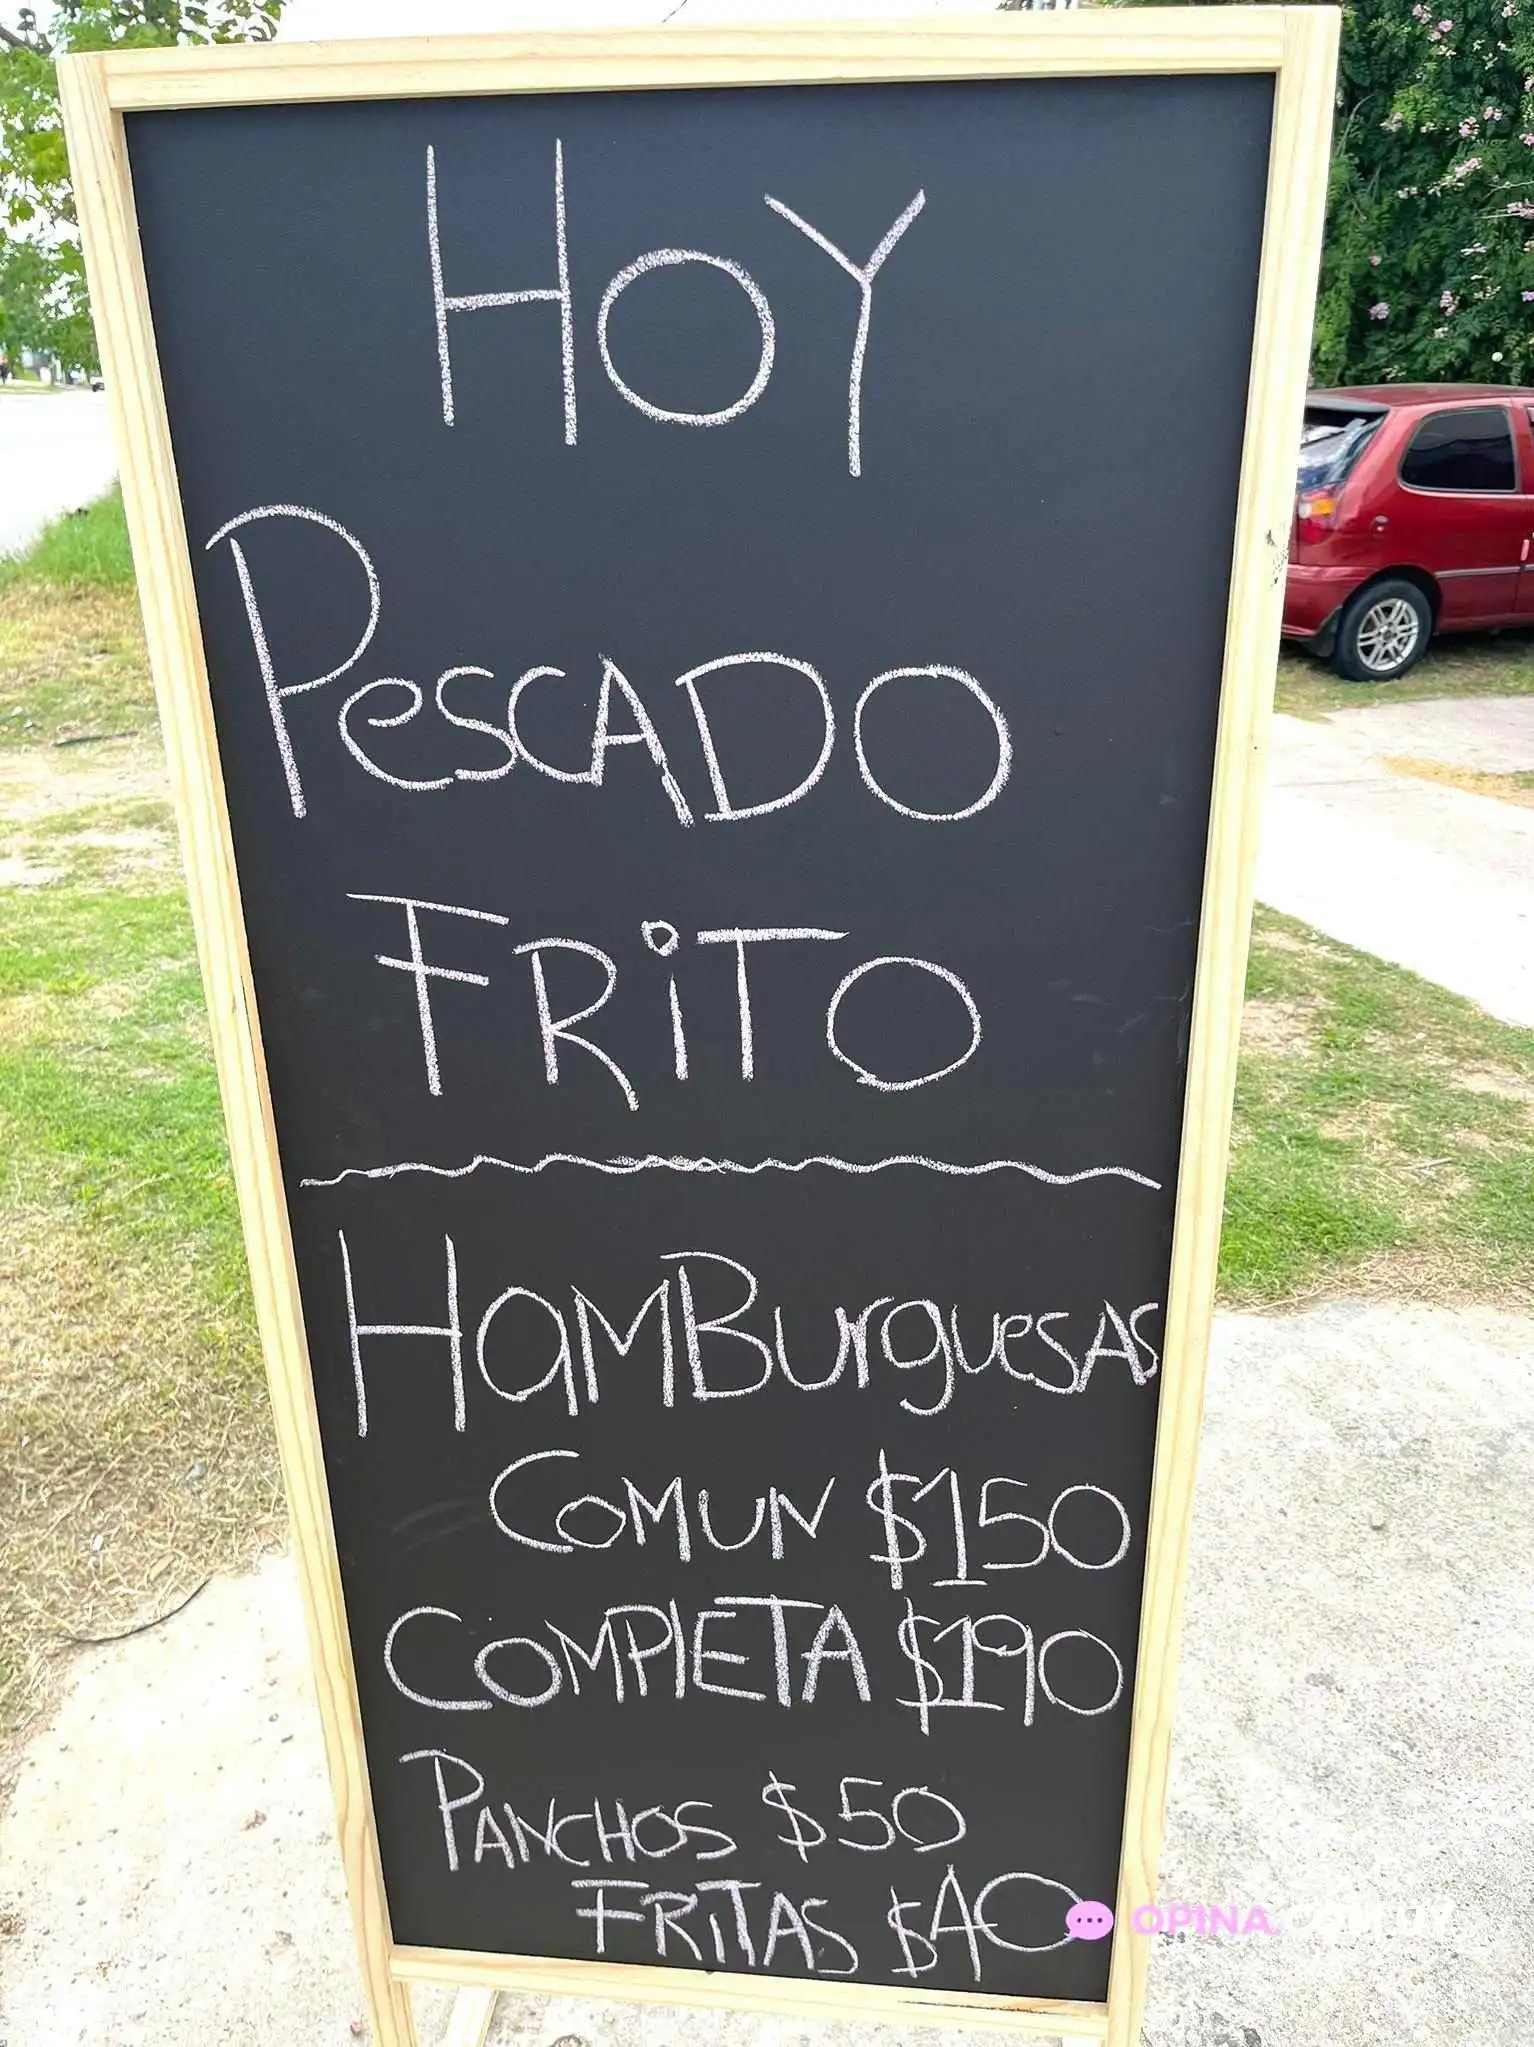 HOY
PESCADO
FRITO
HAMBURGUESAS
COMUN $150
COMPLETA $190
PANCHOS $50
FRITAS $40
OPINA